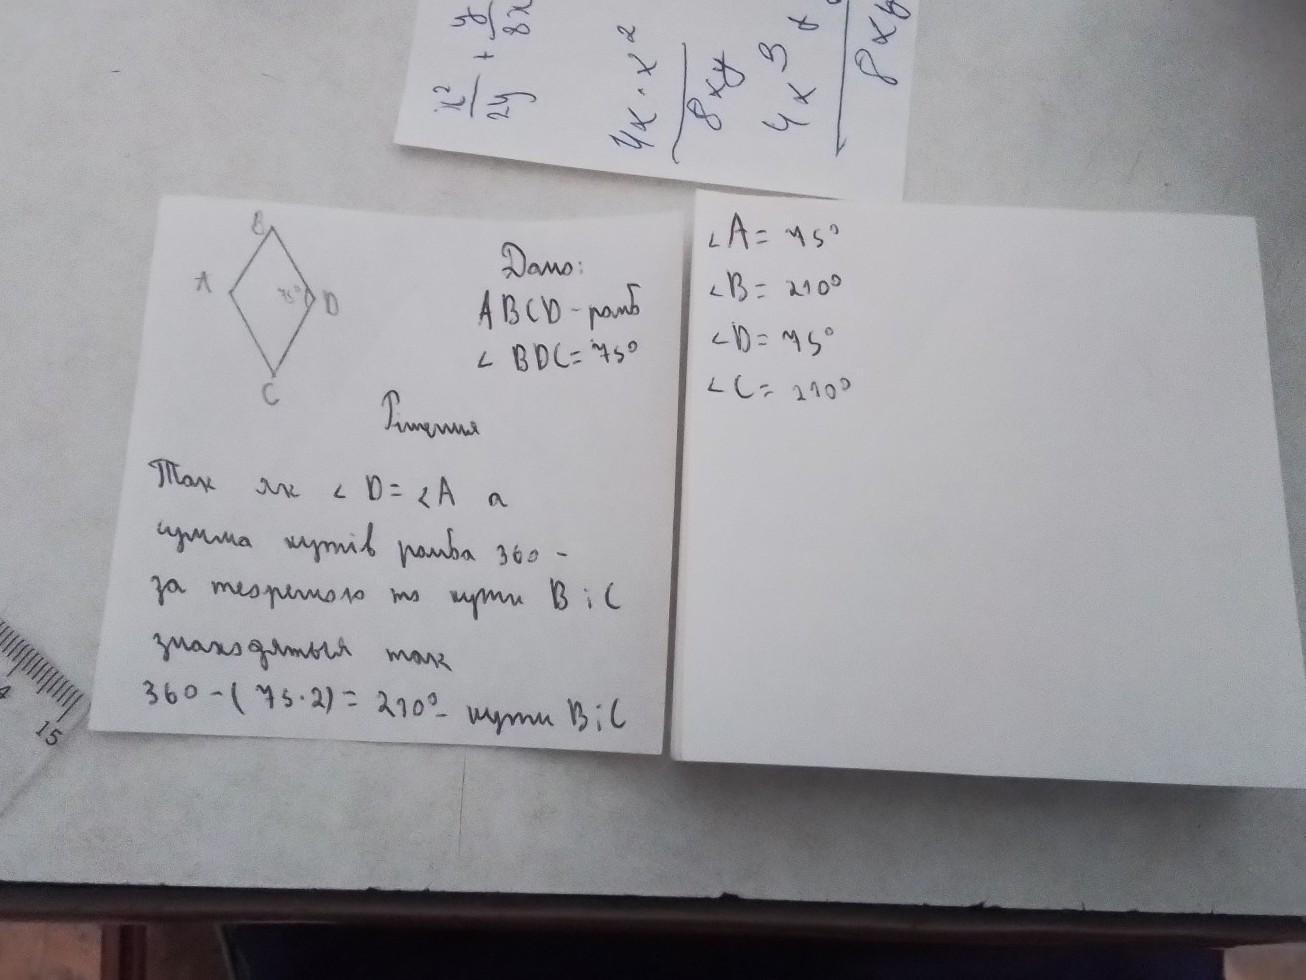 x²/2y + y/8x
4x · x²
8xy
4x³ +
8xy
B
A
75°
D
C
Дано:
ABCD - ромб
∠ BDC = 75°
Рішення
Так як ∠ D = ∠A а
сумма кутів ромба 360 -
за теоремою то кути B і C
знаходяться так
360 - ( 75 · 2) = 210° - кути B і C
∠A = 75°
∠B = 210°
∠D = 75°
∠C = 210°
4
15